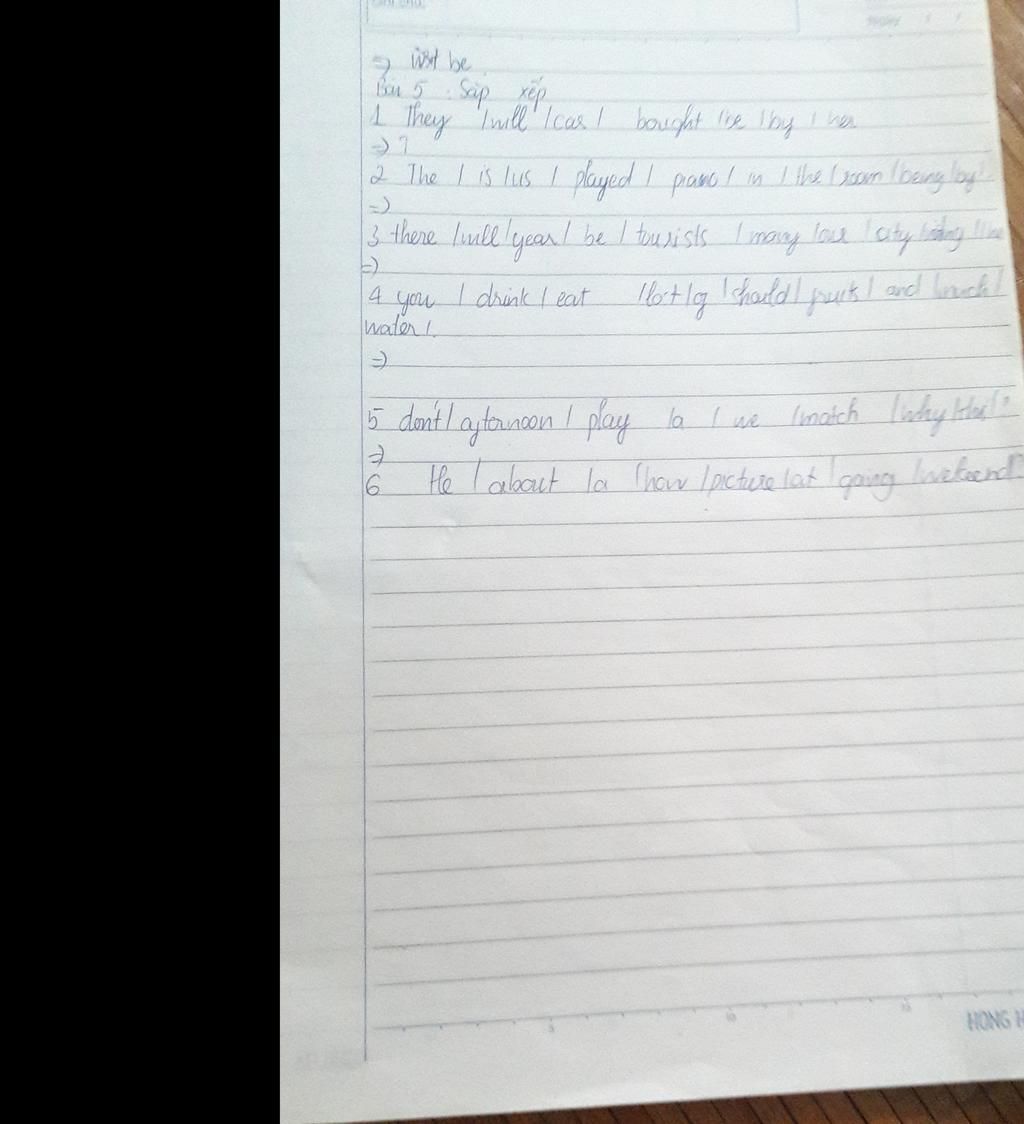 => won't be
Bài 5 : Sắp xếp
1 They /will /car / bought /be /by / her
=> 7
2 The / is /us / played / piano / in / the / room /being /by
=>
3 there /will /year / be / tourists / many /our / city
=>
4 you / drink / eat /lot /of /should / fruits / and /much /
water /.
=>
5 don't / afternoon / play /a / we /match /why
=>
6 He / about /a /how /picture /at /going /weekend
HONG H